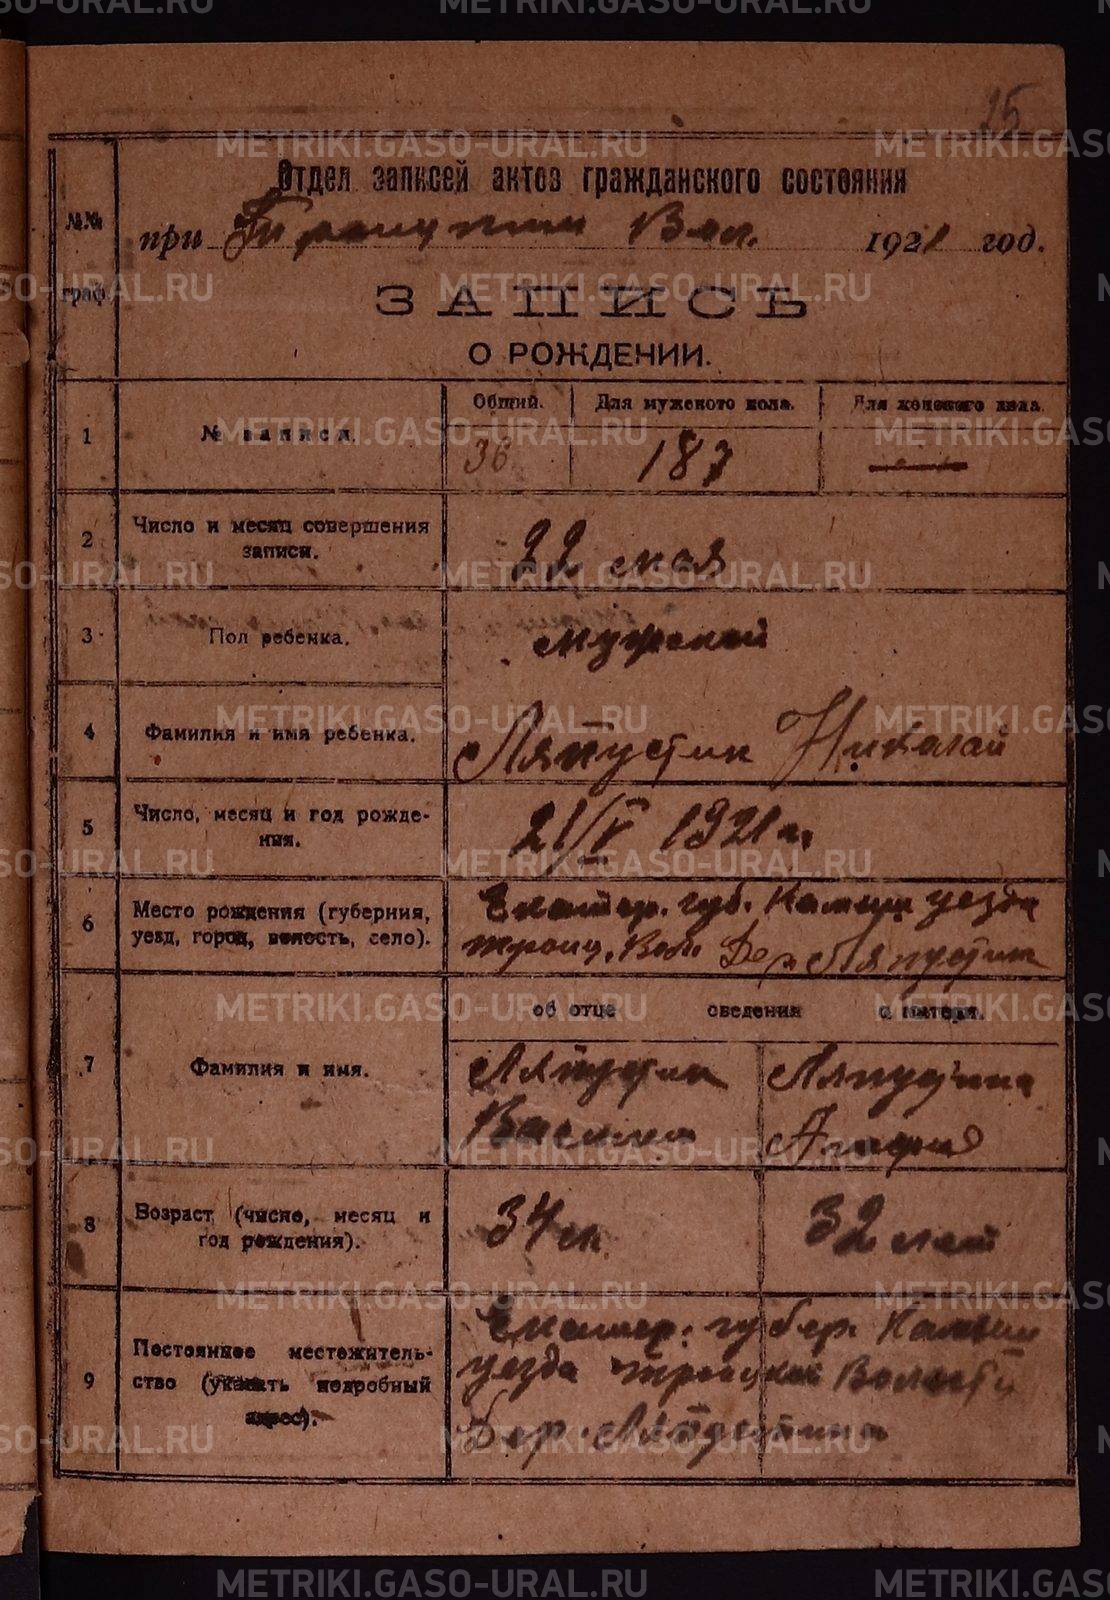 METRIKI.GASO-URAL.RU
25
Отдел записей актов гражданского состояния
№№ граф.
при Троицкой Вол. 1921 год.
ЗАПИСЬ
О РОЖДЕНИИ.
1
№ записи.
Общий.
Для мужского пола.
Для женского пола.
36
187
—
2
Число и месяц совершения
записи.
22 мая
3
Пол ребенка.
мужской
4
Фамилия и имя ребенка.
Ляпустин Николай
5
Число, месяц и год рожде-
ния.
21/V 1921 г.
6
Место рождения (губерния,
уезд, город, волость, село).
Екатер. губ. Камыш уезда
троиц. Вол. Дер. Ляпустин
7
Фамилия и имя.
об отце сведения о матери.
Ляпустин
Василий
Ляпустина
Агафия
8
Возраст (число, месяц и
год рождения).
34 л.
32 лет
9
Постоянное местожитель-
ство (указать подробный
адрес).
Екатер. губер. Камыш
уезда троицкой Волости
Дер. Ляпустина